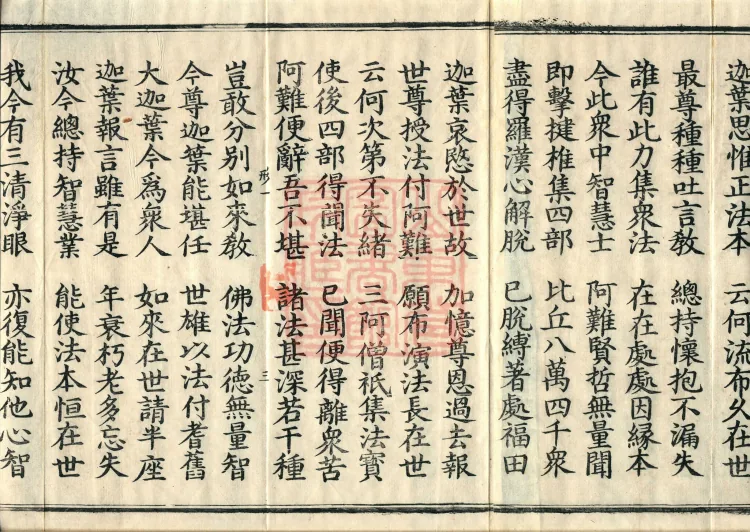 迦葉思惟正法本　云何流布久在世
最尊種種吐言教　總持懷抱不漏失
誰有此力集衆法　在在處處因緣本
今此衆中智慧士　阿難賢哲無量聞
即擊揵椎集四部　比丘八萬四千衆
盡得羅漢心解脫　已脫縛著處福田
迦葉哀愍於世故　加憶尊恩過去報
世尊授法付阿難　願布演法長在世
云何次第不失緒　三阿僧祇集法寶
使後四部得聞法　已聞便得離衆苦
阿難便辭吾不堪　諸法甚深若干種
形一　三
豈敢分別如來教　佛法功德無量智
今尊迦葉能堪任　世雄以法付耆舊
大迦葉今爲衆人　如來在世請半座
迦葉報言雖有是　年衰朽老多忘失
汝今總持智慧業　能使法本恒在世
我今有三清淨眼　亦復能知他心智